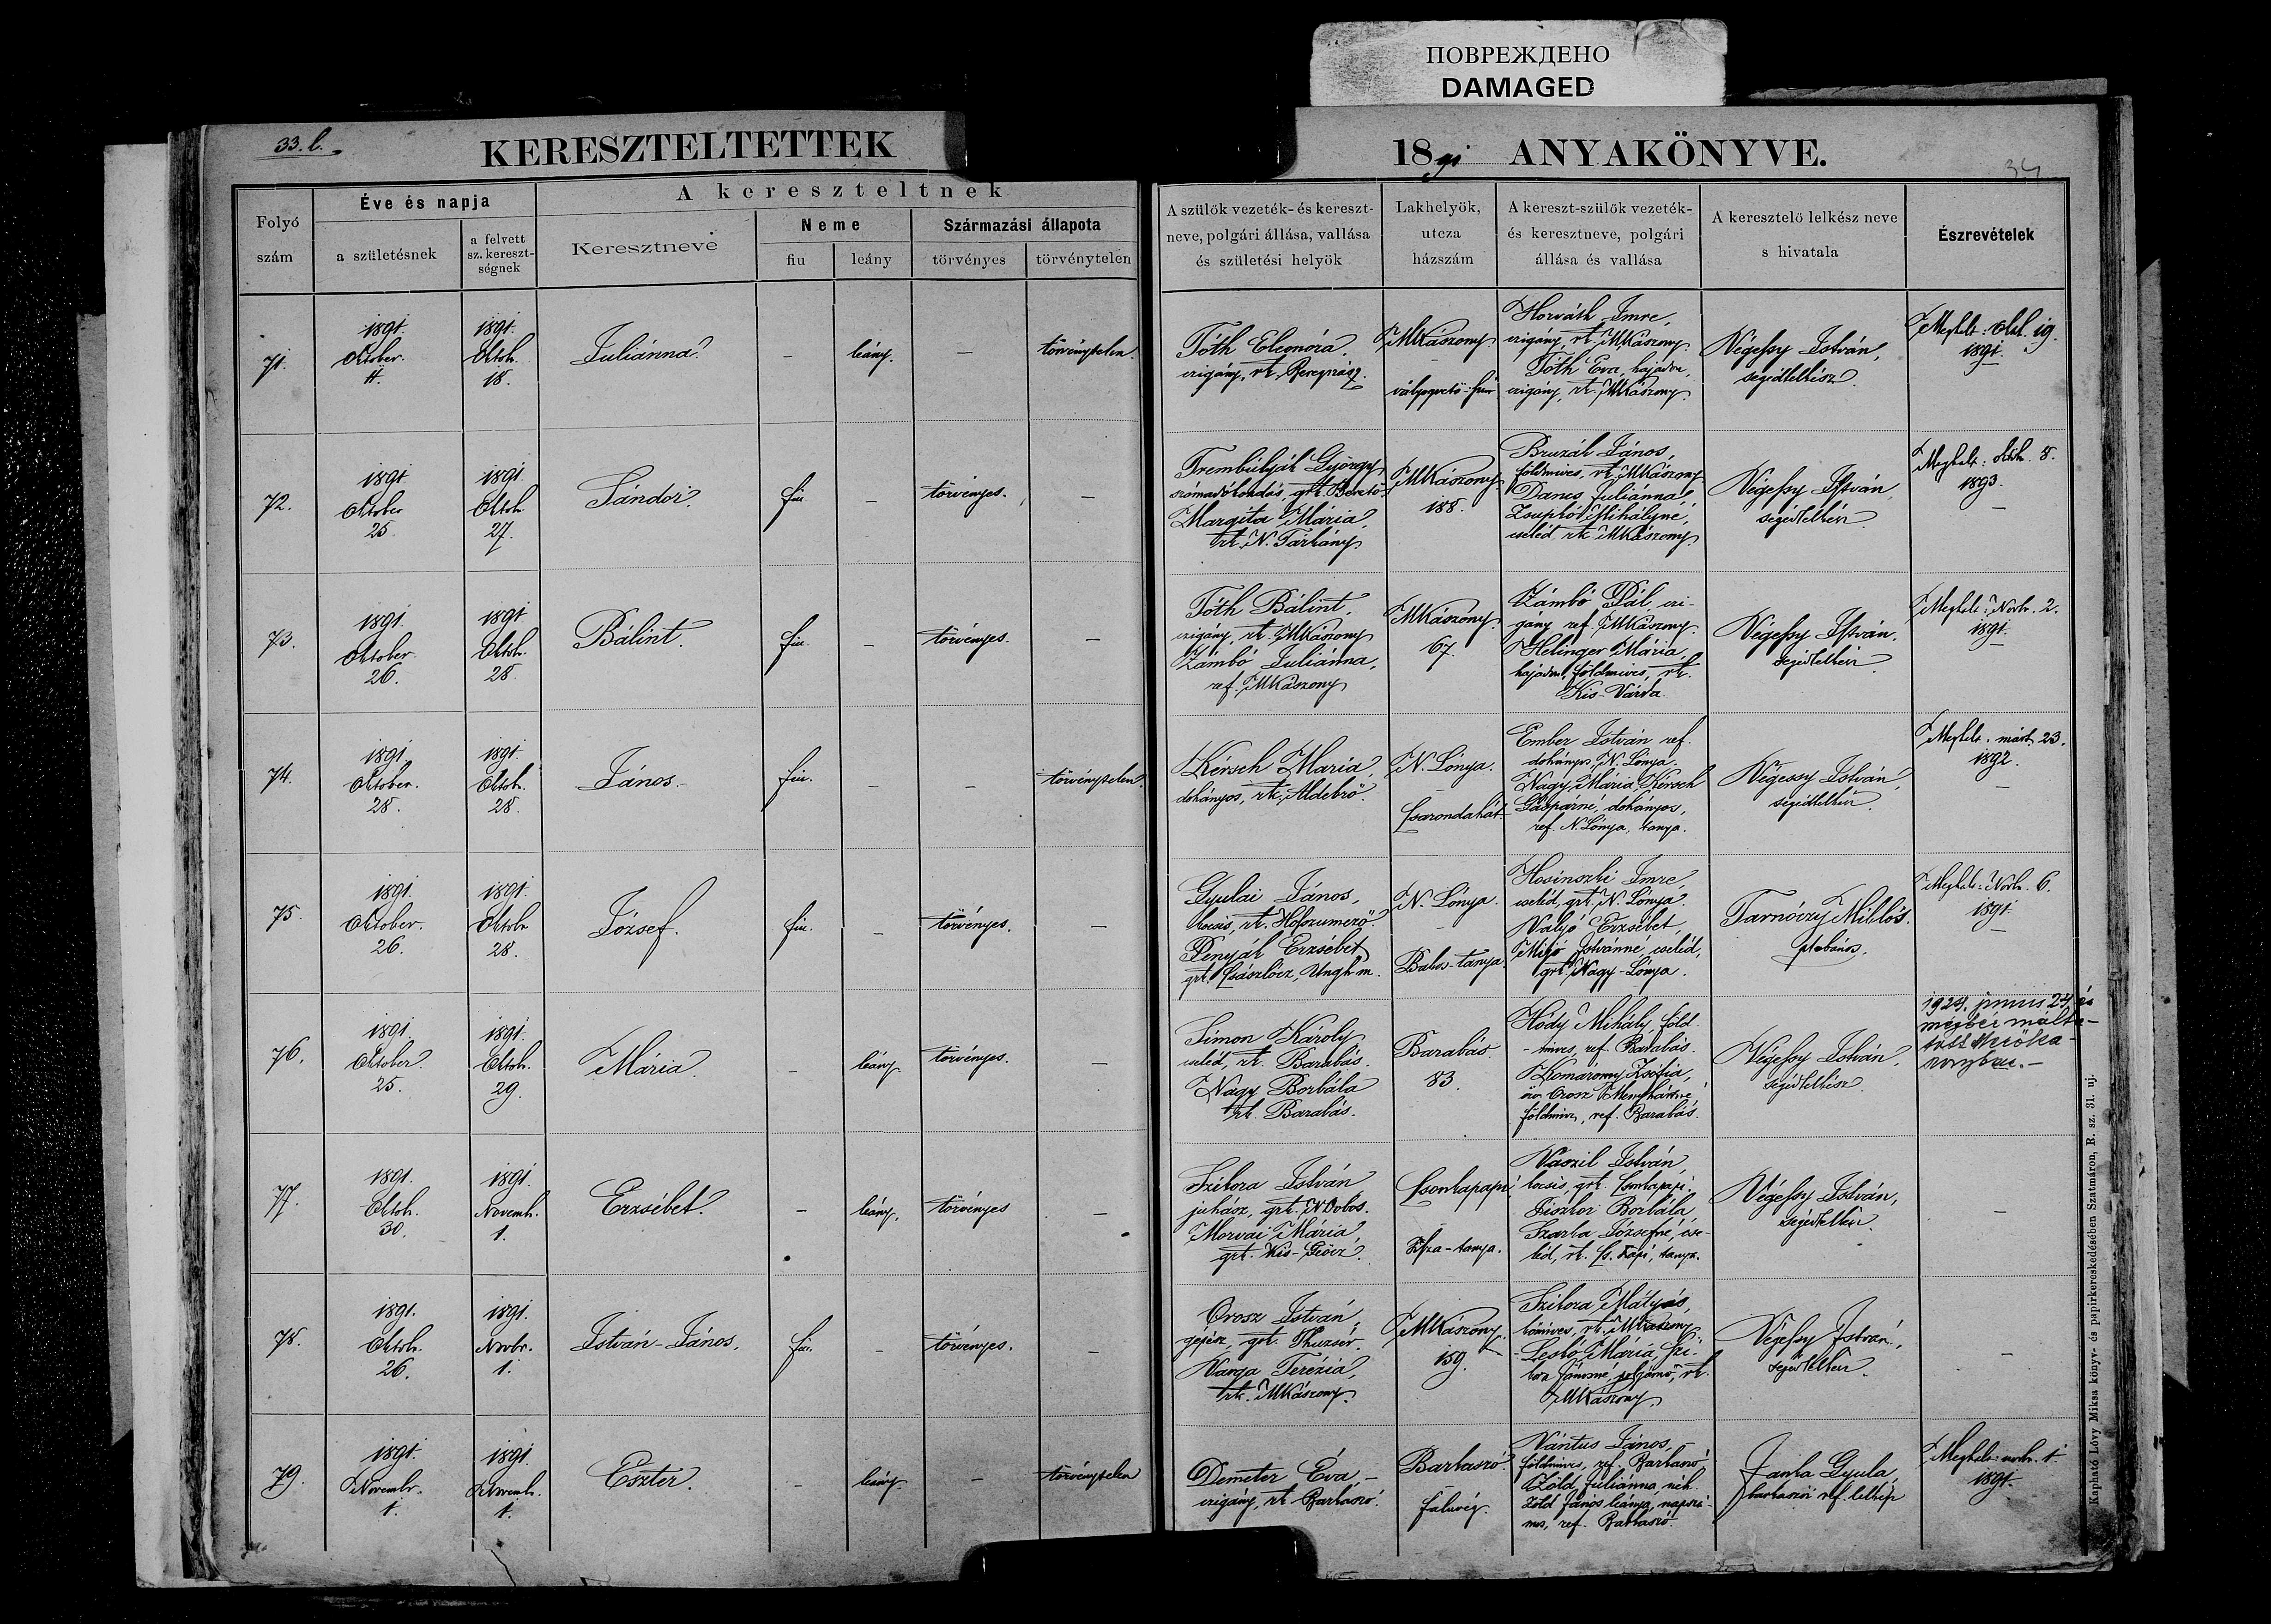 ПОВРЕЖДЕНО
DAMAGED
33. l.
KERESZTELTETTEK
1891 ANYAKÖNYVE.
34
Folyó
szám
Éve és napja
a születésnek
a felvett
sz. kereszt-
ségnek
A kereszteltnek
Keresztneve
Neme
fiu
leány
Származási állapota
törvényes
törvénytelen
A szülők vezeték- és kereszt-
neve, polgári állása, vallása
és születési helyök
Lakhelyök,
utcza
házszám
A kereszt-szülők vezeték-
és keresztneve, polgári
állása és vallása
A keresztelő lelkész neve
s hivatala
Észrevételek
71.
1891.
Oktober.
1891.
Oktob.
18.
Juliánna.
–
leány.
–
törvénytelen.
Tóth Eleonóra,
czigány, rk. Beregrász.
MKászony.
–
Horváth Imre,
czigány, rk. MKászony.
Tóth Éva, hajadon,
czigány, rk. MKászony.
Végessy István,
segédlelkész.
Meghalt: okt. 19.
1891.
72.
1891
Oktober
25
1891
Oktob
27.
Sándor.
fiu
–
törvényes.
–
Trembulyák György
számadó kondás, grk.
Margita Mária,
rk. N. Tárkány.
MKászony
188.
Bruzák János,
földmives, rk. MKászony
Dancs Juliánna,
Mihályné,
cseléd rk. MKászony.
Végessy István
segédlelkész
Meghalt: oktb. 8.
1893.
–
73.
1891.
Oktober
26.
1891
Oktob.
28.
Bálint.
fiu.
–
törvényes.
–
Tóth Bálint,
czigány, rk. MKászony
Zámbó Juliánna,
ref. MKászony
MKászony.
67.
Zámbó Pál, czi-
gány ref. MKászony.
Helinger Mária,
hajadon, földmives, rk.
Kis-Várda.
Végessy István.
segédlelkész
Meghalt: Novb. 2.
1891.
74.
1891.
Oktober.
28.
1891.
Oktob.
28.
János.
fiu.
–
–
törvénytelen.
Kérsch Mária,
dohányos, rk. Aldebrő.
N. Lónya.
–
Csarondahát.
Ember István ref.
dohányos, N. Lónya.
Nagy Mária Kérsch
Gáspárné, dohányos,
ref. N. Lónya, tanya.
Végessy István,
segédlelkész.
Meghalt. márt. 23.
1892.
–
75.
1891.
Oktober.
26.
1891.
Oktob
28.
József.
fiu.
–
törvényes.
–
Gyulai János,
kocsis, rk. Hoszumező.
Penyák Erzsébet
grk. Császlócz, Ungh m.
N. Lónya.
–
Babos-tanya.
Hosinszki Imre,
cseléd, grk. N. Lónya.
Valyó Erzsébet,
Mijó Istvánné, cseléd,
grk. Nagy-Lónya.
Tarnóczy Miklós.
plebános.
Meghalt: Novb. 6.
1891.
–
76.
1891.
Oktober.
25.
1891.
Oktob.
29.
Mária
–
leány
törvényes.
–
Simon Károly
cseléd, rk. Barabás.
Nagy Borbála
rk. Barabás.
Barabás.
83.
Hódy Mihály, föld-
mives, ref. Barabás.
Komaromy Zsófia,
özv. Orosz Menyhártné
földmives, ref. Barabás.
Végessy István,
segédlelkész
77.
1891.
Oktob.
30.
1891.
Novemb.
1.
Erzsébet.
–
leány.
törvényes
–
Szikora István
juhász, grk. N. Dobos.
Morvai Mária,
grk. Kis-Geőcz.
Csonkapapi
–
Vaszil István,
kocsis, grk. Csonkapapi.
Borbála
Szarka Józsefné, cse-
léd, rk. Cs. Papi, tanya.
Végessy István,
segédlelkész.
–
78.
1891.
Oktob.
26.
1891.
Novbr.
1.
István-János.
fiu.
–
törvényes.
–
Orosz István,
gépész, grk. Thuzsér.
Varga Terézia,
rk. MKászony.
MKászony.
159.
Szikora Mátyás,
kőmives, rk. MKászony.
Leskó Mária Szi-
kora Jánosné, rk.
MKászony.
Végessy István,
segédlelkész.
–
79.
1891.
Novembr.
1.
1891.
Novemb.
1.
Eszter.
–
leány.
–
törvénytelen
Demeter Éva –
czigány, rk. Barkaszó.
Barkaszó.
–
faluvég.
Vántus János,
földmives, ref. Barkaszó
Zöld Juliánna, néh.
Zöld János leánya, napszá-
mos, ref. Barkaszó.
Janka Gyula,
barkaszói ref. lelkész
Meghalt: novb. 1.
1891.
Kapható Lövy Miksa könyv- és papirkereskedésében Szatmáron, R. sz. 31. uj.